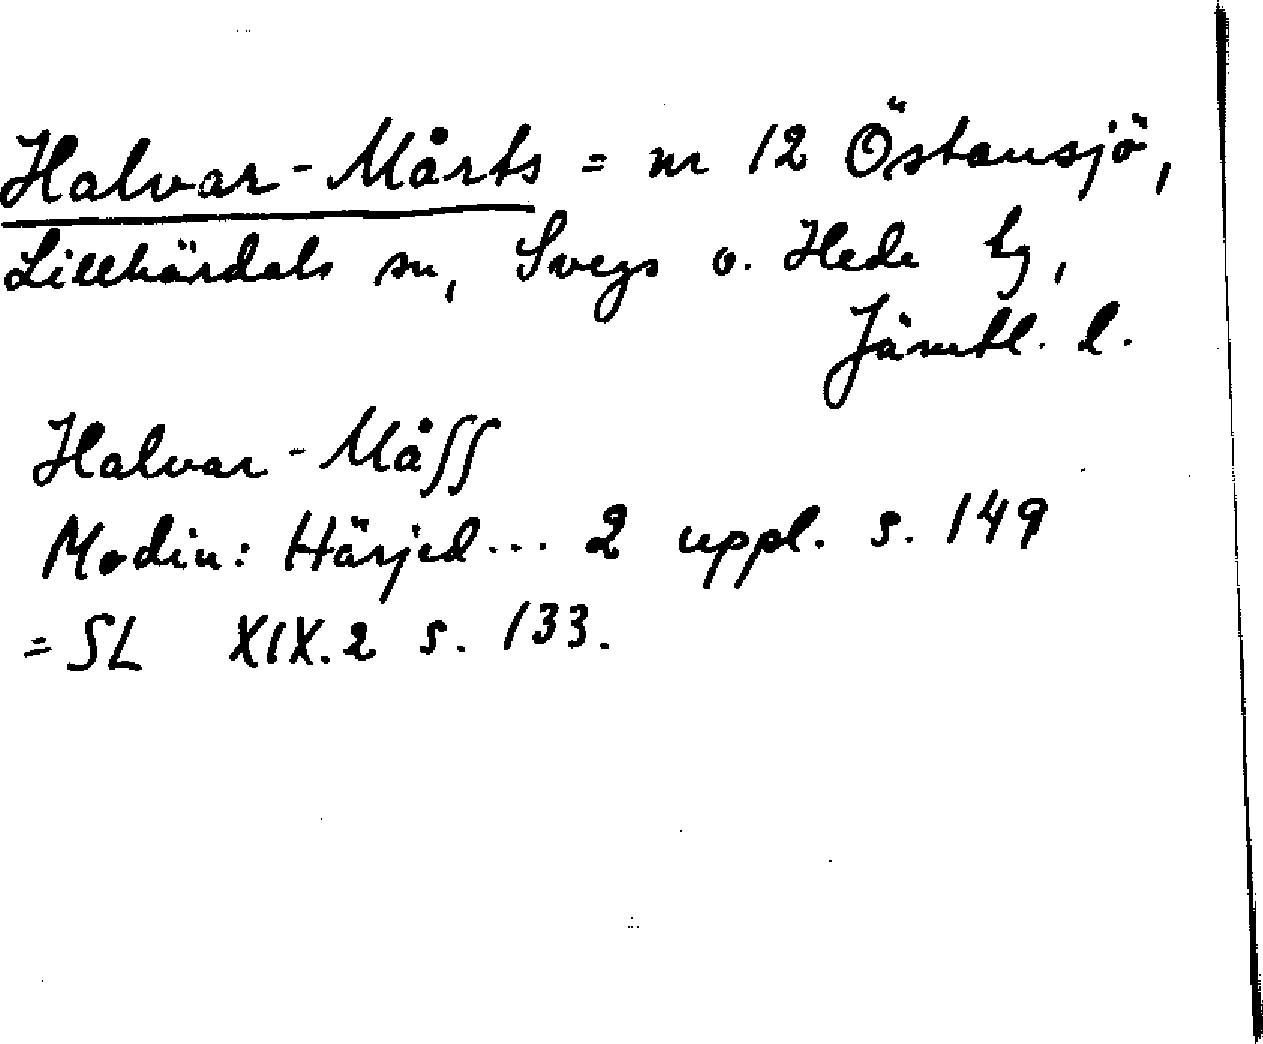 Halvar-Mårts = nr 12 Östansjö,
Lillhärdals sn, Svegs o. Hede tg,
Jämtl. l.
Halvar-Måſſ
Modin: Härjed... 2 uppl. s. 149
= SL XIX.2 s. 133.